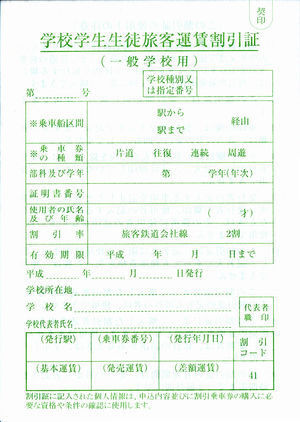 契印
学校学生生徒旅客運賃割引証
(一般学校用)
第 号
学校種別又は指定番号
※乗車船区間 駅から 駅まで 経由
※乗車券の種類 片道 往復 連続 周遊
部科及び学年 第 学年(年次)
証明書番号
使用者の氏名及び年齢 (才)
割引率 旅客鉄道会社線 2割
有効期限 平成 年 月 日まで
平成 年 月 日発行
学校所在地
学校名
学校代表者氏名
代表者職印
(発行駅) (乗車券番号) (発行年月日) 割引コード
(基本運賃) (発売運賃) (差額運賃) 41
割引証に記入された個人情報は、申込内容並びに割引乗車券の購入に必
要な資格や条件の確認に使用します。